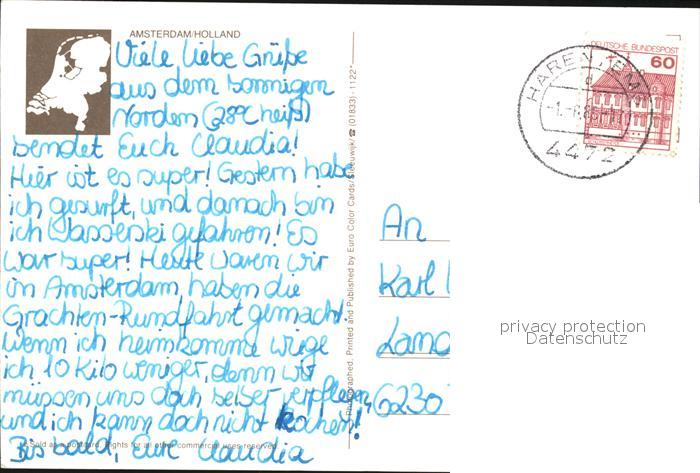 AMSTERDAM/HOLLAND
Viele liebe Grüße
aus dem sonnigen
Norden (28°C heiß)
sendet Euch Claudia!
Hier ist es super! Gestern habe
ich gesurft, und danach bin
ich Wasserski gefahren! Es
war super! Heute waren wir
in Amsterdam, haben die
Grachten-Rundfahrt gemacht.
Wenn ich heimkomme wiege
ich 10 Kilo weniger, denn wir
müssen uns doch selber verpflegen,
und ich kann doch nicht kochen!
Bis bald, Eure Claudia
Sold as a postcard. Rights for all other commercial uses reserved.
Photographed, Printed and Published by Euro Color Cards/ ☎ (01833) - 1122*
DEUTSCHE BUNDESPOST
60
HAREN, EMS
4472
An
Karl
6230
privacy protection
Datenschutz